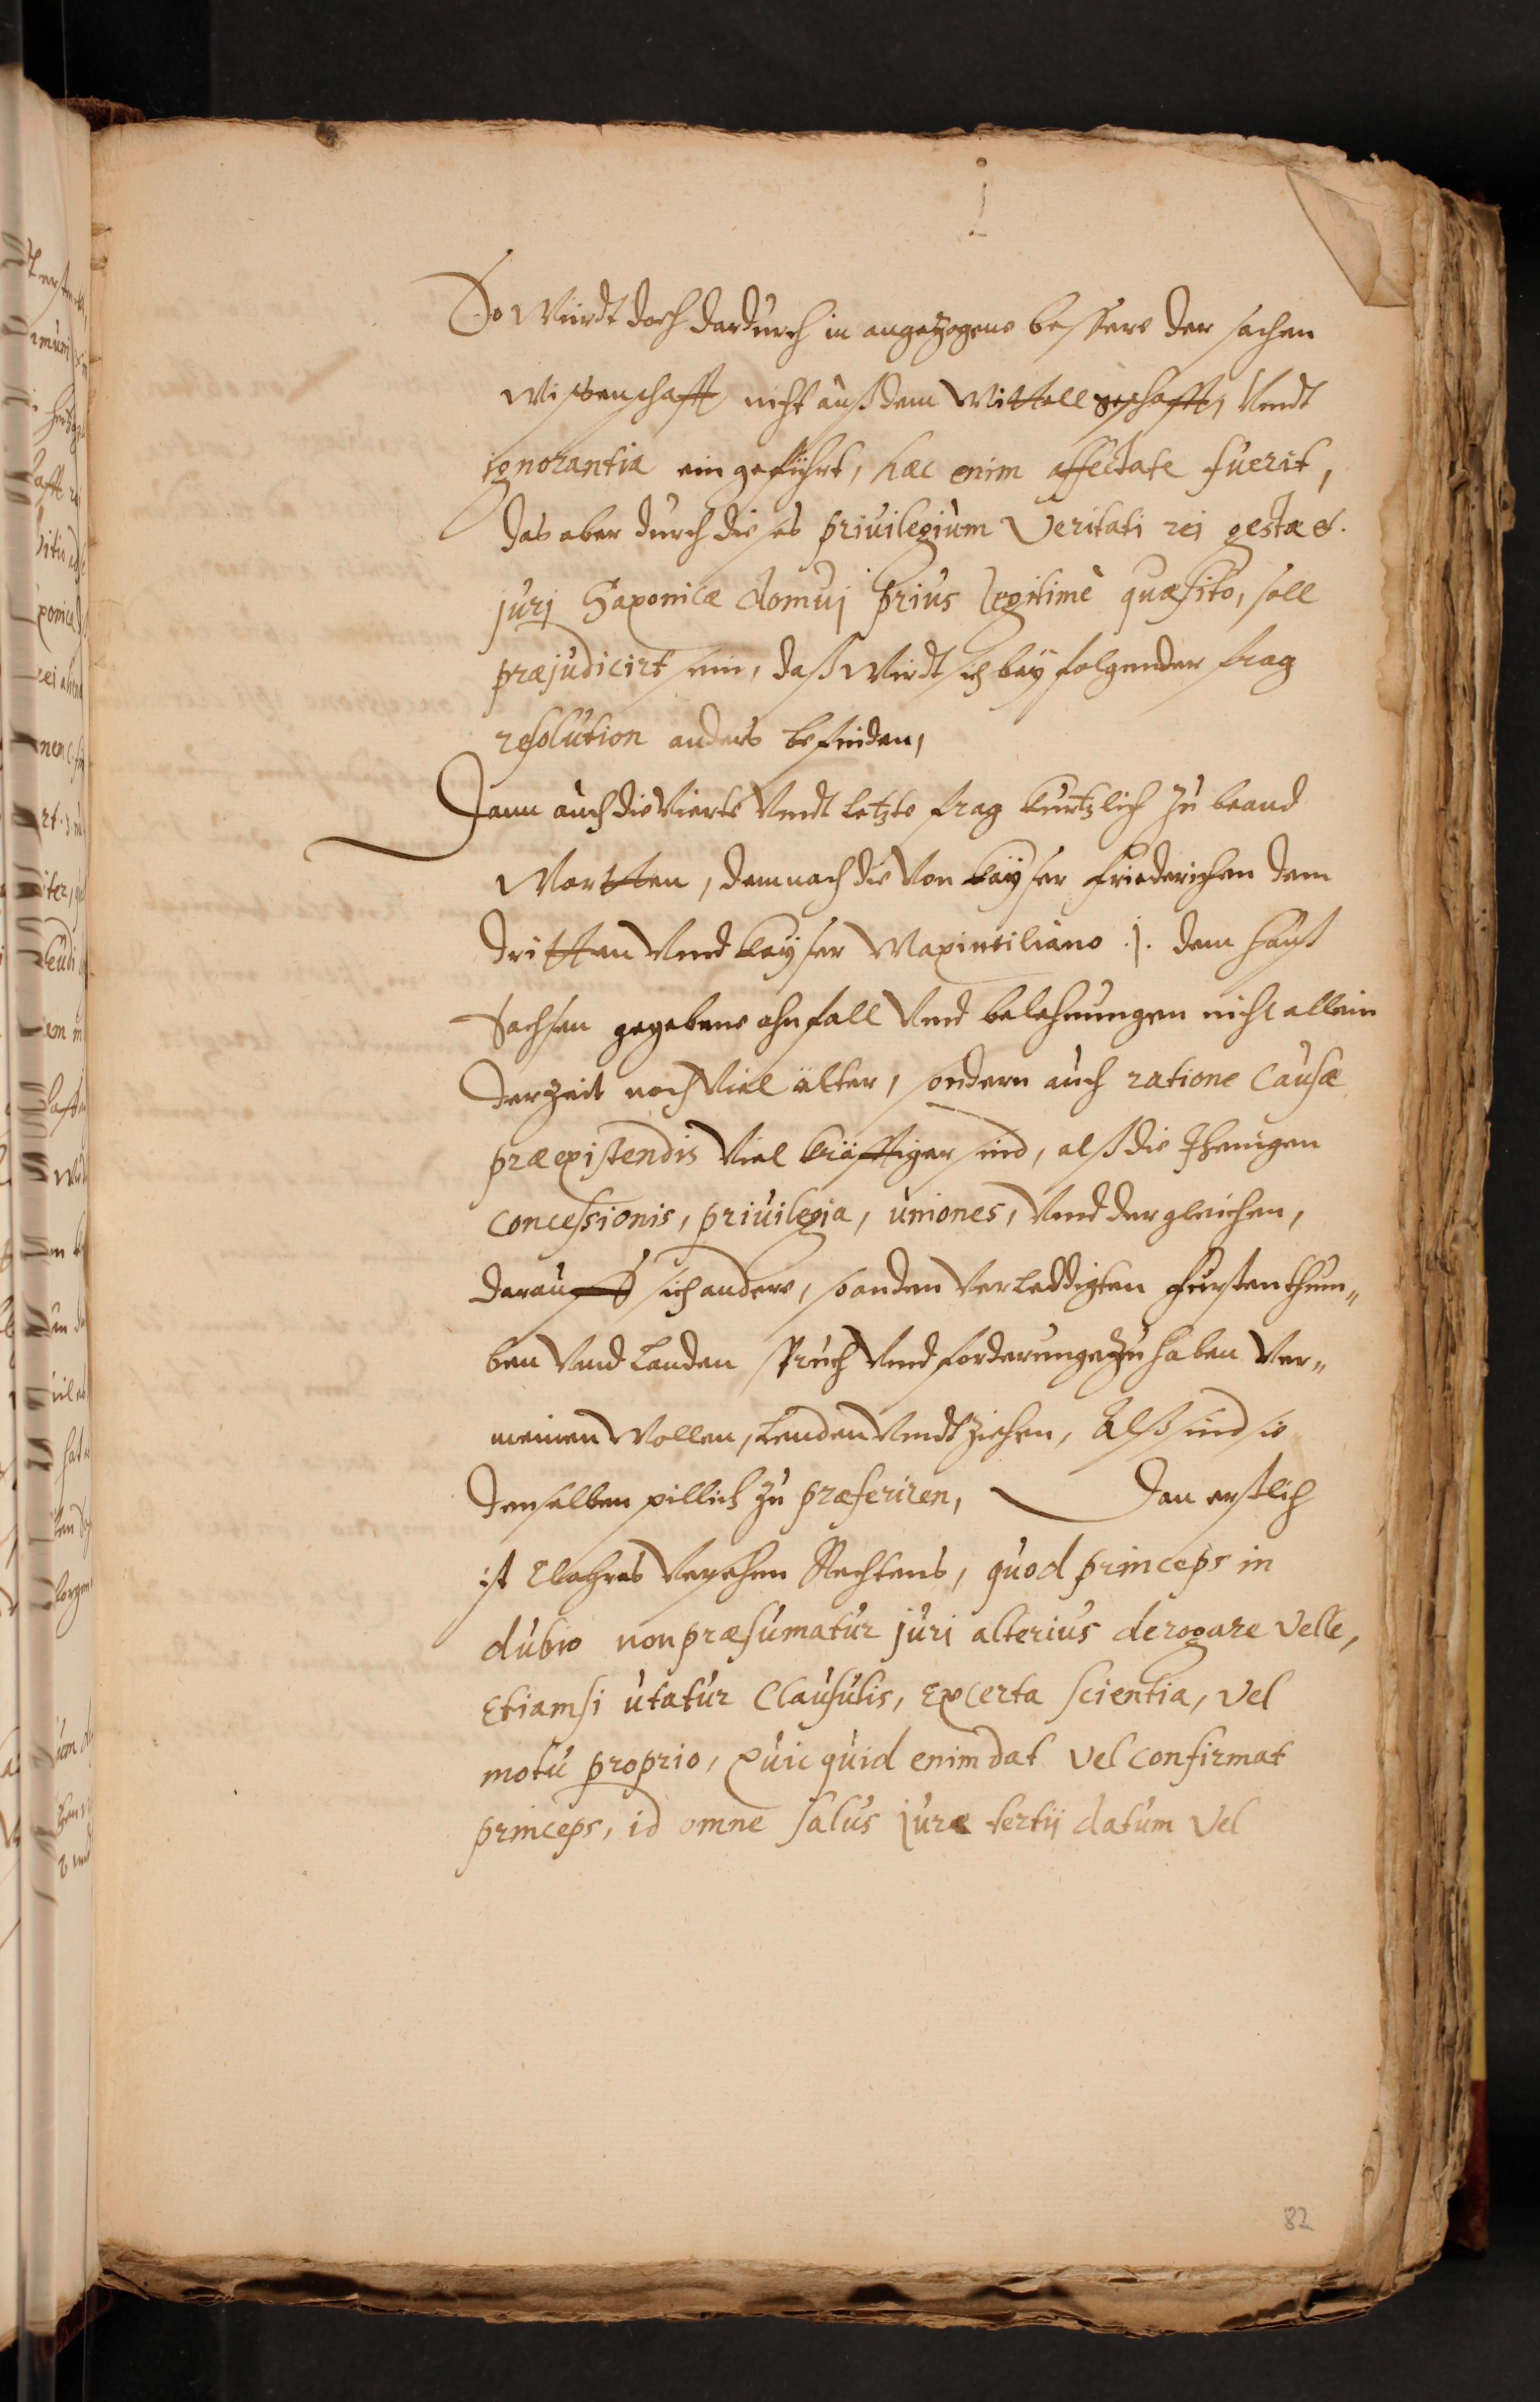 So Würdt doch dardurch in angezogene bessere der sachen
Wissenschafft nicht auß dem Mittell geschafft, Vndt
ignorantia eingeführt, hæc enim affectate fuerit,
das aber durch dises priuilegium Veritati rei gestæ &.
jurj Saxonicæ domuj prius legitimè quæsito, soll
præjudicirt sein, daß Wirdt sich bey folgender frag
resolution anders befinden,
Dann auch die Vierte Vndt letzte frag kurtzlich zu beand
Wortten, demnach die Von kaÿser Friederichen dem
dritten Vnd kayser Maximiliano .j. dem hauß
Sachsen gegebene ahnfall Vnd belehnungen nicht allein
der Zeit noch Viel älter, sondern auch ratione Causæ
præexistendis Viel kräfftiger sind, alß die Jhenigen
concessionis, priuilegia, uniones, Vnd dergleichen,
darauff sich andere, so an den Verleddigten Furstenthum„
ben Vnd Landen spruch Vnd forderunge zu haben Ver„
meinen Wollen, Vndt ziehen, Alß sind sie
denselben pillich zu præferiren, Dan erstlich
ist Rechtens, quod princeps in
dubio non præsumatur juri alterius derogare Velle,
Etiamsi utatur Clausulis, Ex certa scientia, vel
motu proprio, Quicquid enim dat vel confirmat
princeps, id omne saluo jure tertij datum Vel
82